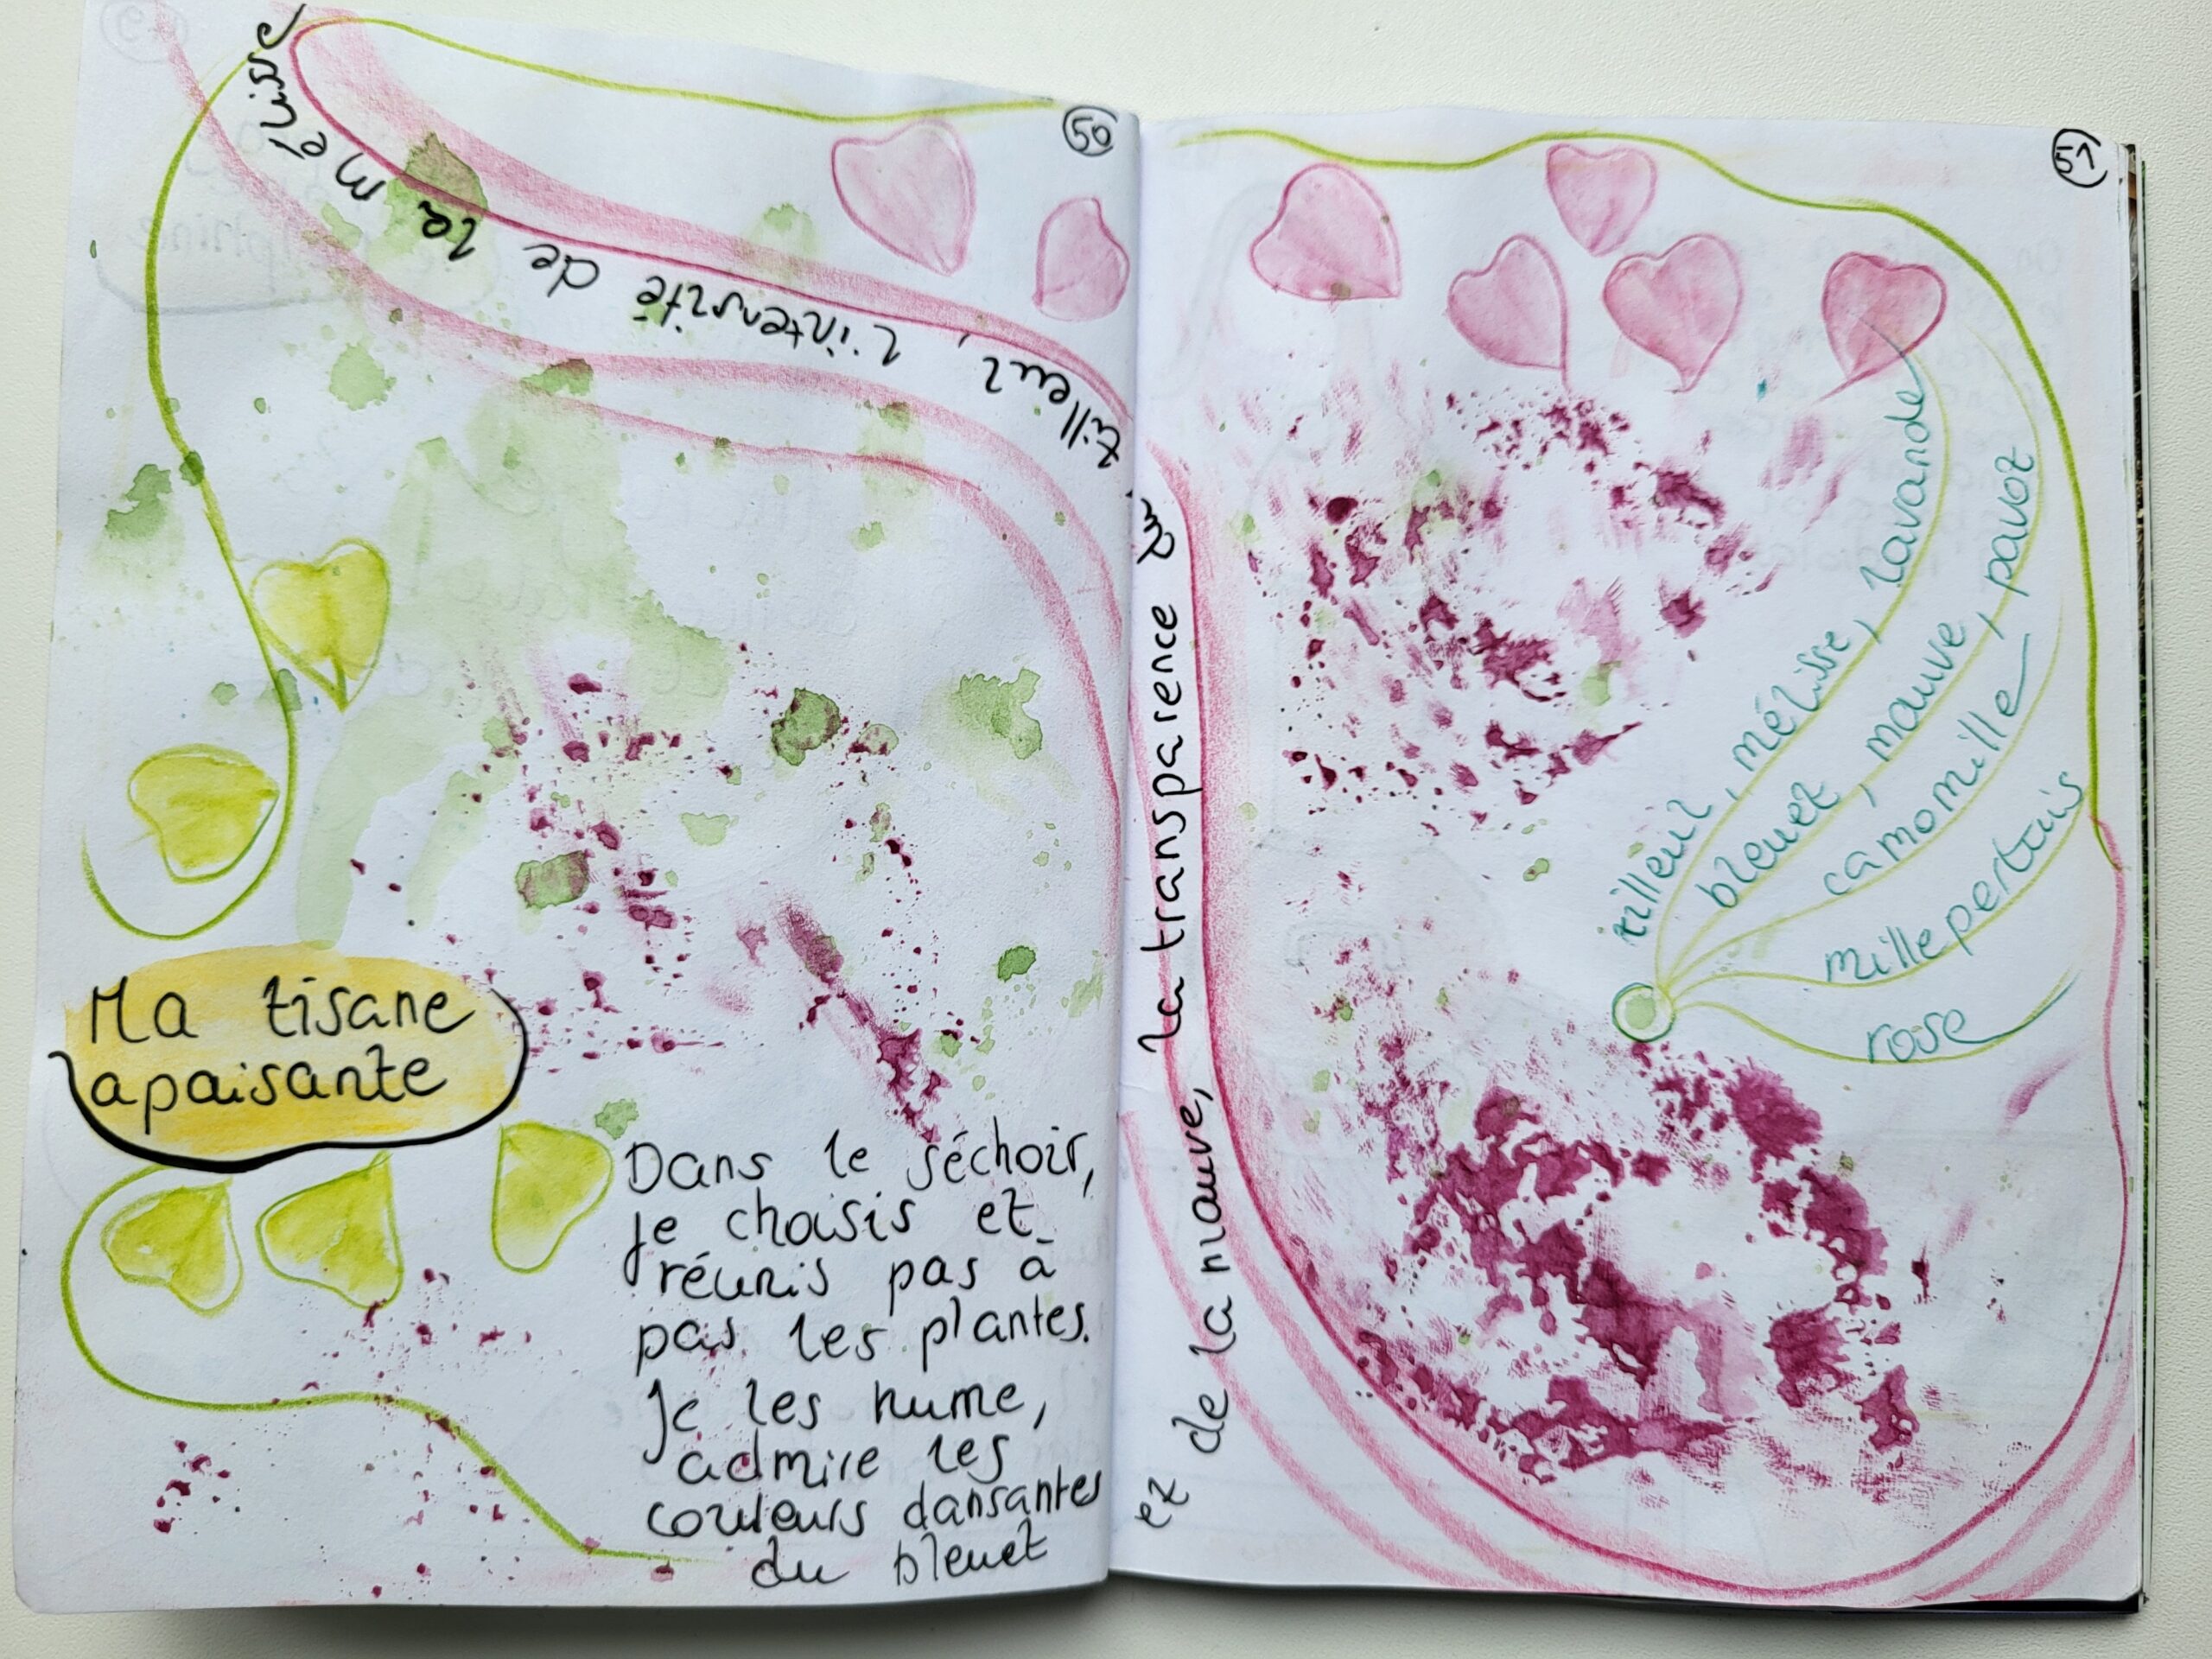 50
Ma tisane
apaisante
Dans le séchoir,
je choisis et
réunis pas à
pas les plantes.
Je les hume,
admire les
couleurs dansantes
du bleuet
et de la mauve, la transparence du
tilleul, l'intensité de la mélisse
51
tilleul, mélisse, lavande
bleuet, mauve, pavot
camomille
millepertuis
rose